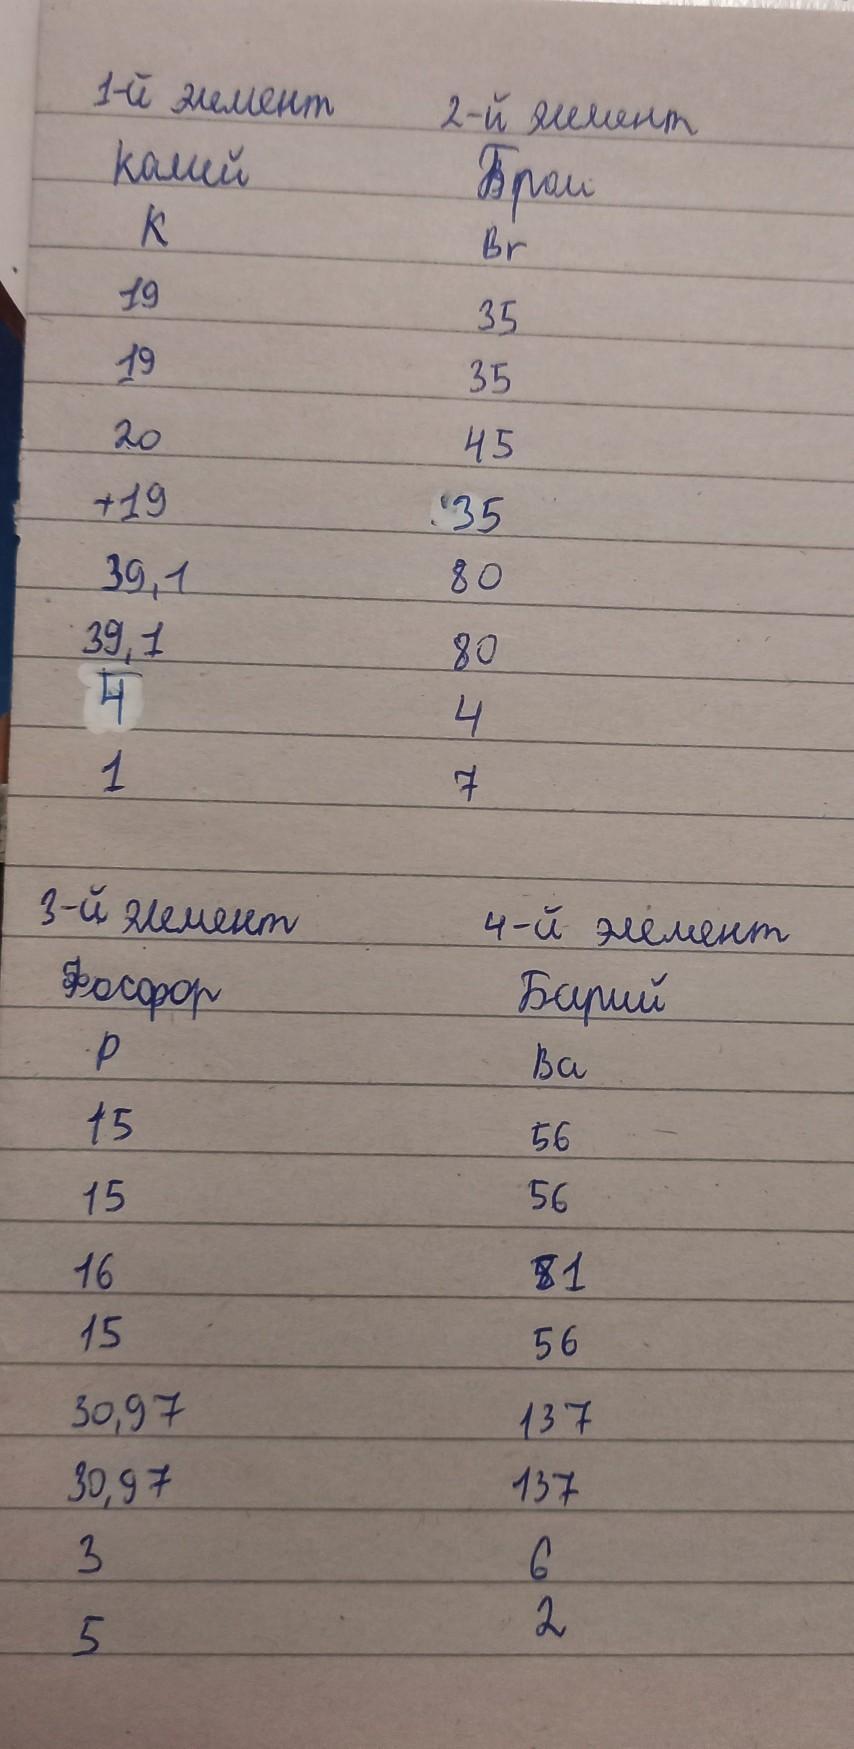 1-й элемент 2-й элемент
Калий Бром
K Br
19 35
19 35
20 45
+19 35
39,1 80
39,1 80
4 4
1 7
3-й элемент 4-й элемент
Фосфор Барий
P Ba
15 56
15 56
16 81
15 56
30,97 137
30,97 137
3 6
5 2